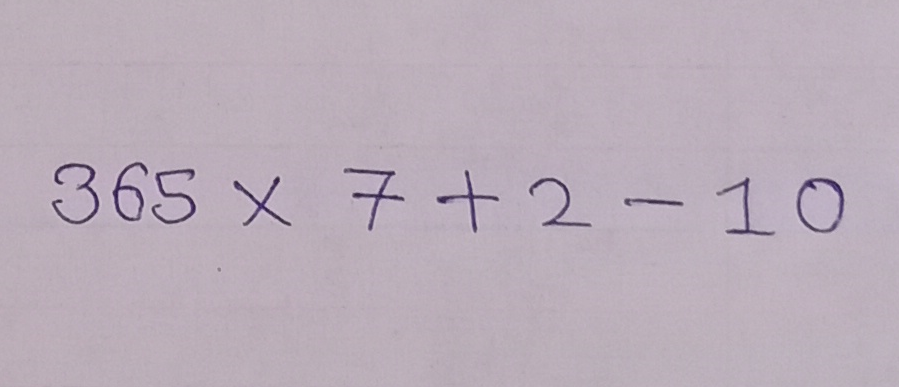 365 × 7 + 2 - 10